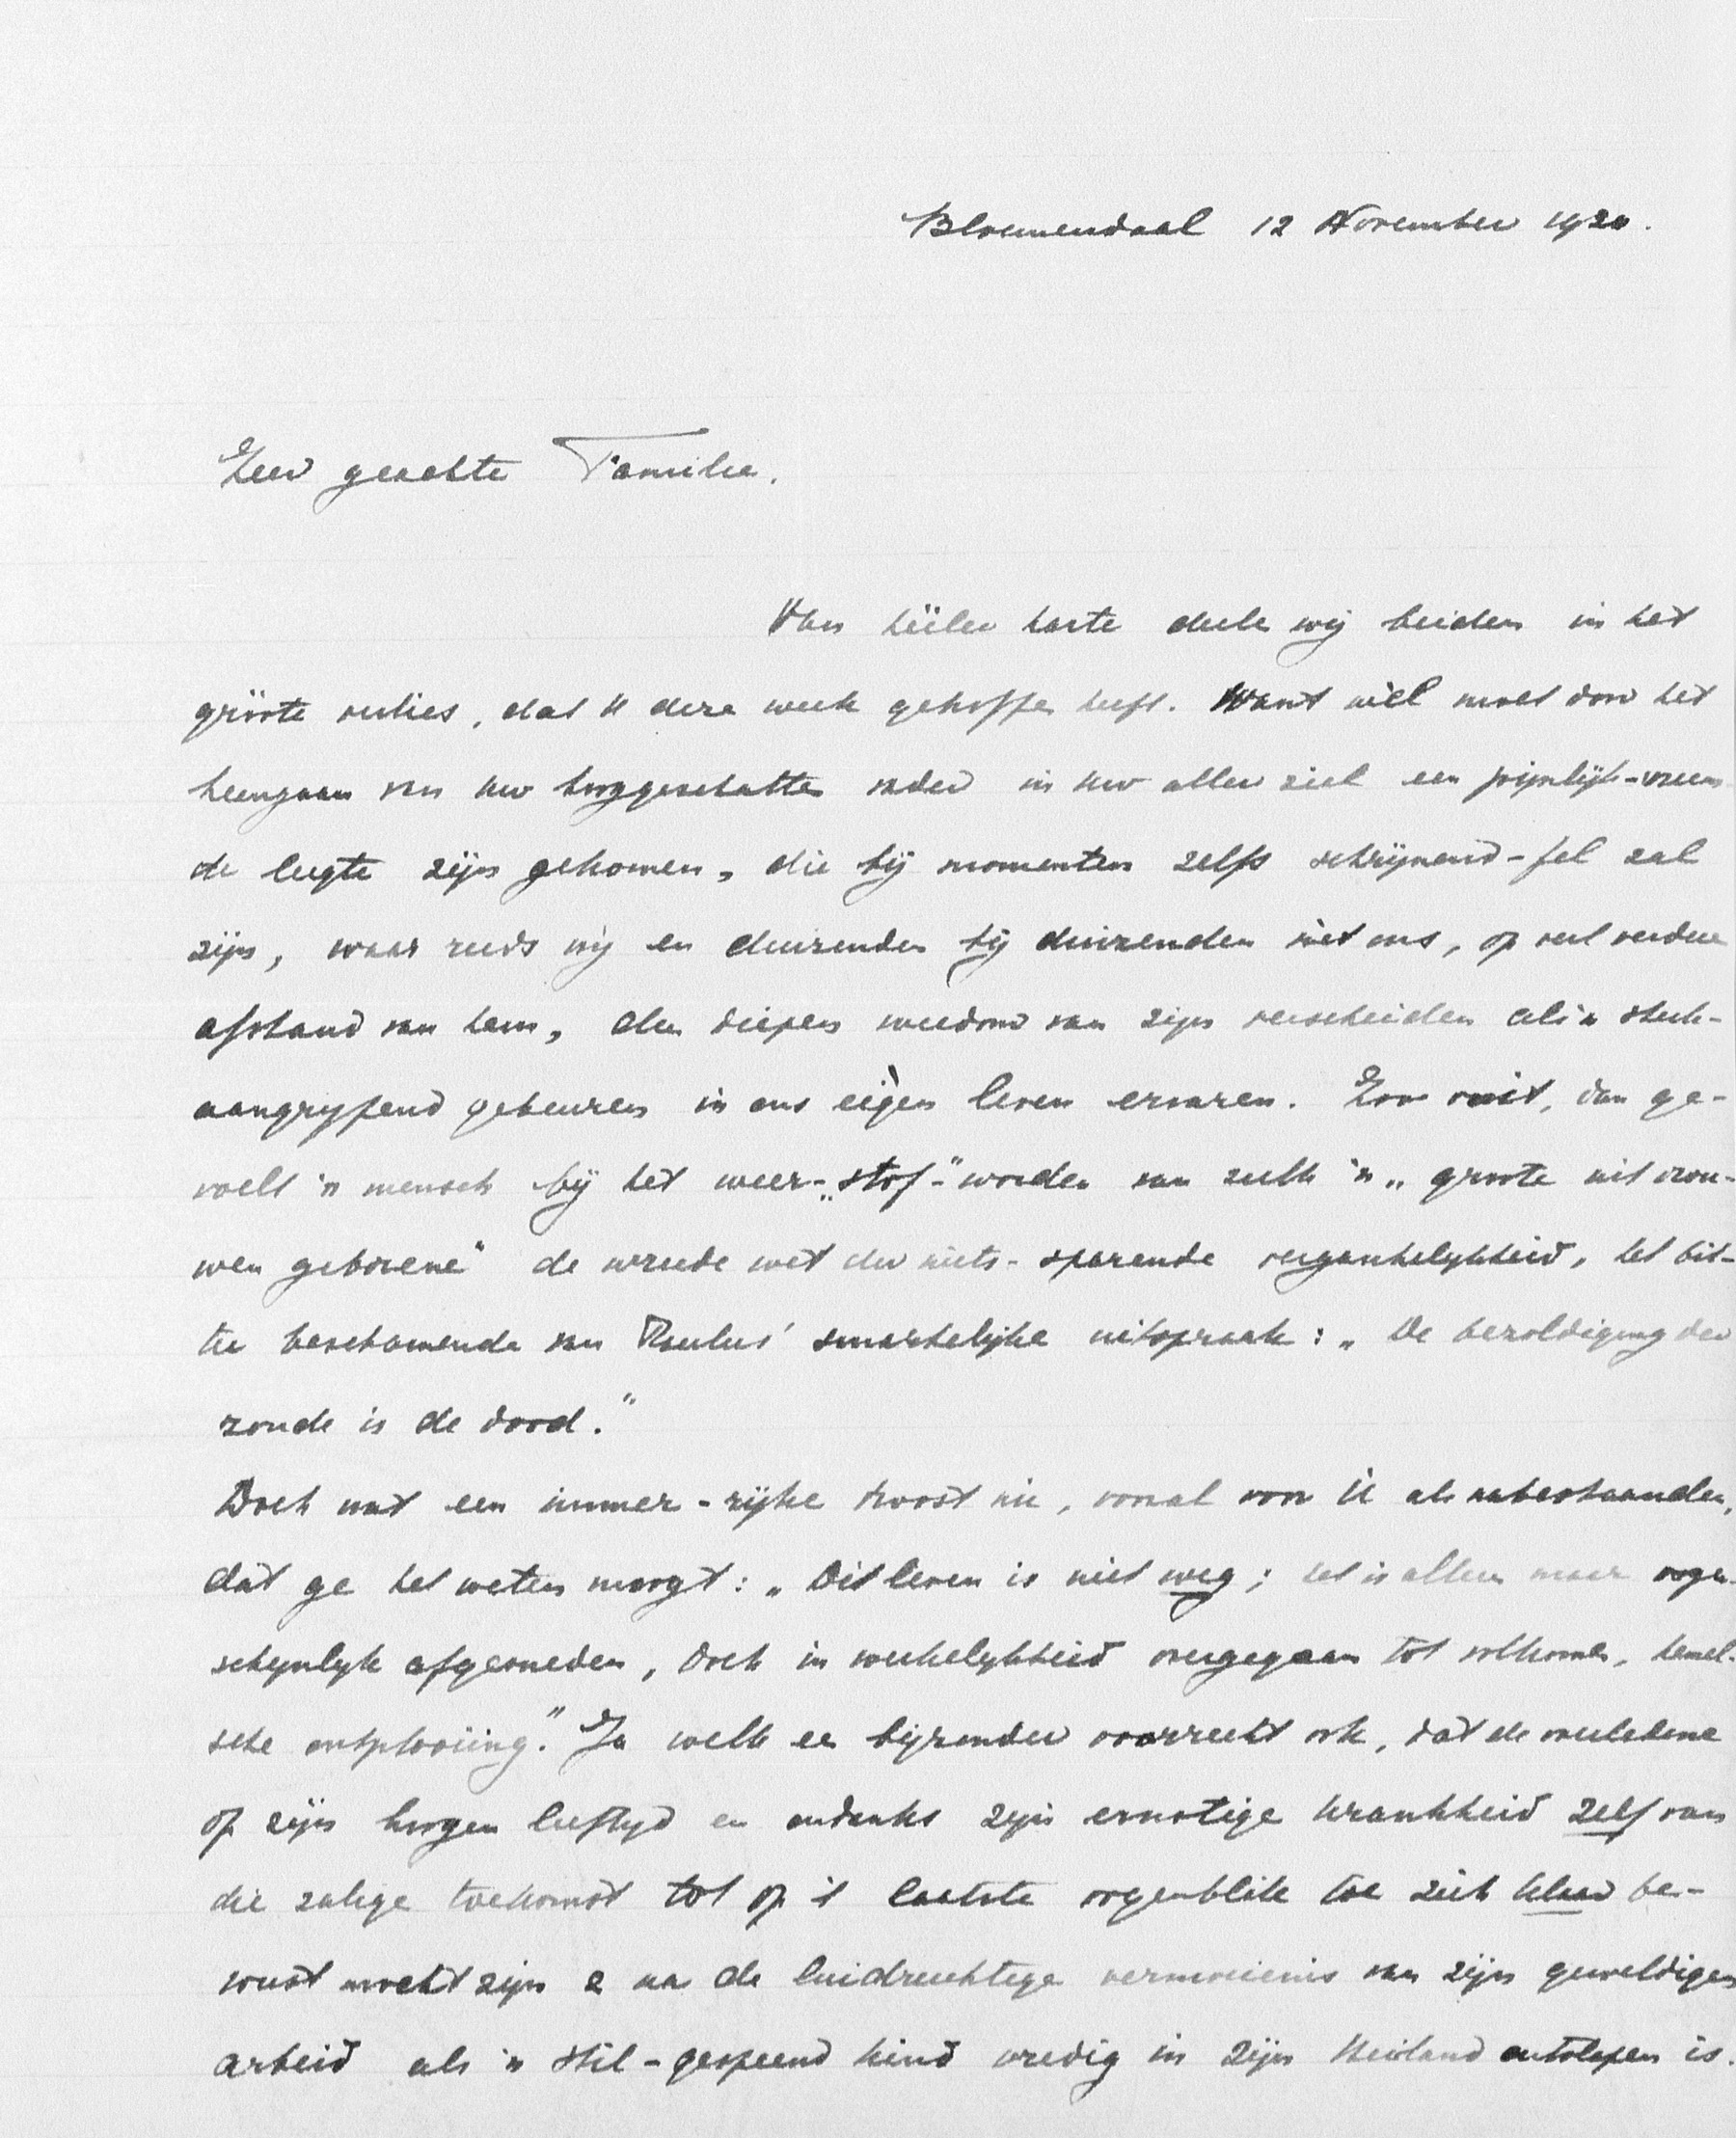 Bloemendaal 12 November 1920.
Zeer geachte Familie.
Van héeler harte deele wij beiden in het
gróote verlies, dat U deze week getroffen heeft. Want wèl moet door het
heengaan van Uw hooggeschatten vader in Uw aller ziel een pijnlijk-vreem
de leegte zijn gekomen, die bij momenten zelfs schrijnend-fel zal
zijn, waar reeds wij en duizenden bij duizenden mèt ons, op veel verdere
afstand van hem, den diepen weedom van zijn verscheiden als 'n sterk-
aangrypend gebeuren in ons eigen leven ervaren. Zoo ooit, dan ge-
voelt 'n mensch bij het weer-„stof-"worden van zulk 'n „groote uit vrou-
wen geborene" de wreede wet der niets-sparende vergankelykheid, het bit-
ter beschamende van Paulus' smartelijke uitspraak: „De bezoldiging der
zonde is de dood."
Doch wat een immer-rijke troost nu, vooral voor U als nabestaanden,
dàt ge het weten moogt: „Dit leven is niet weg; het is alleen maar oogen-
schynlyk afgesneden, doch in werkelykheid overgegaan tot volkomen, hemel-
sche ontplooiing." Ja welk een bijzonder voorrecht ook, dat de overledene
op zijn hoogen leeftyd en ondanks zijn ernstige krankheid zelf van
die zalige toekomst tot op 't laatste oogenblik toe zich klaar be-
wust mocht zijn & na de luidruchtige vermoeienis van zijn geweldigen
arbeid als 'n stil-gespeend kind vredig in Zijn Heiland ontslapen is.